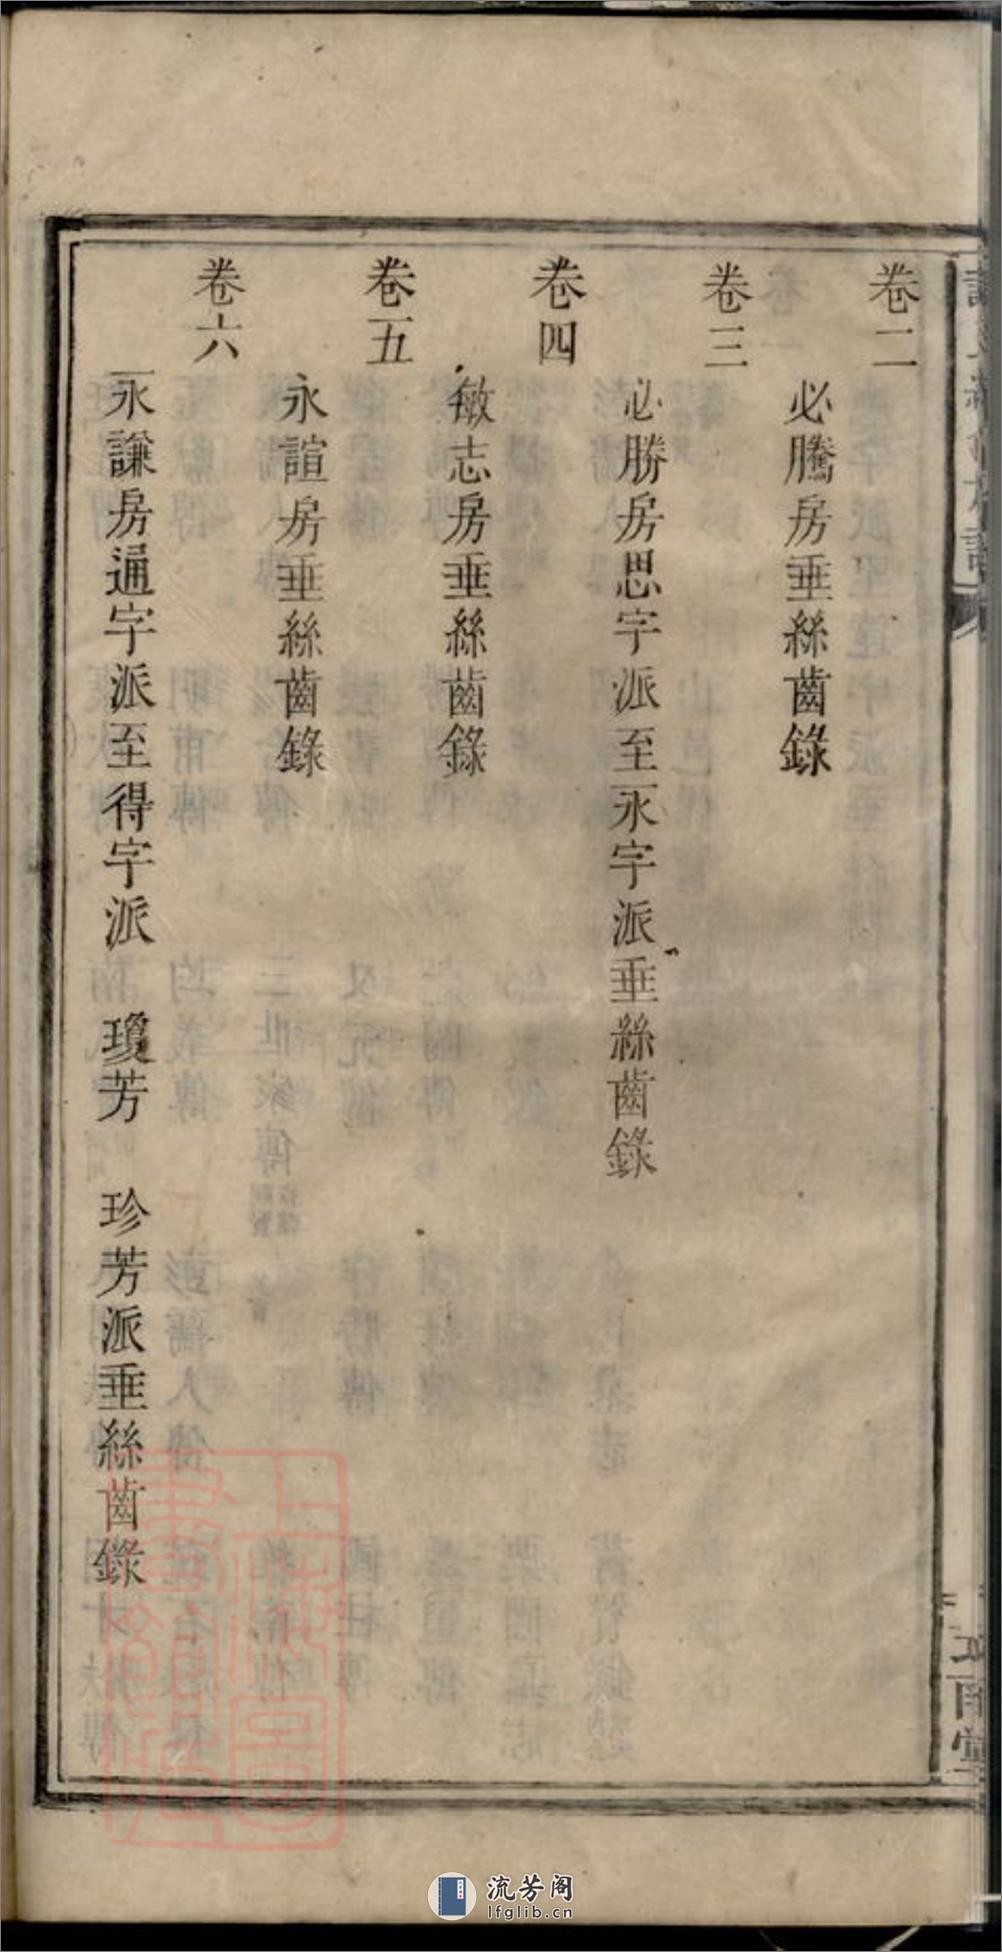 卷二
必騰房垂絲齒錄
卷三
必勝房思字派至永字派垂絲齒錄
卷四
敏志房垂絲齒錄
卷五
永諠房垂絲齒錄
卷六
永謙房通字派至得字派 瓊芳 珍芳派垂絲齒錄
上海圖書館藏
流芳阁
lfglib.cn